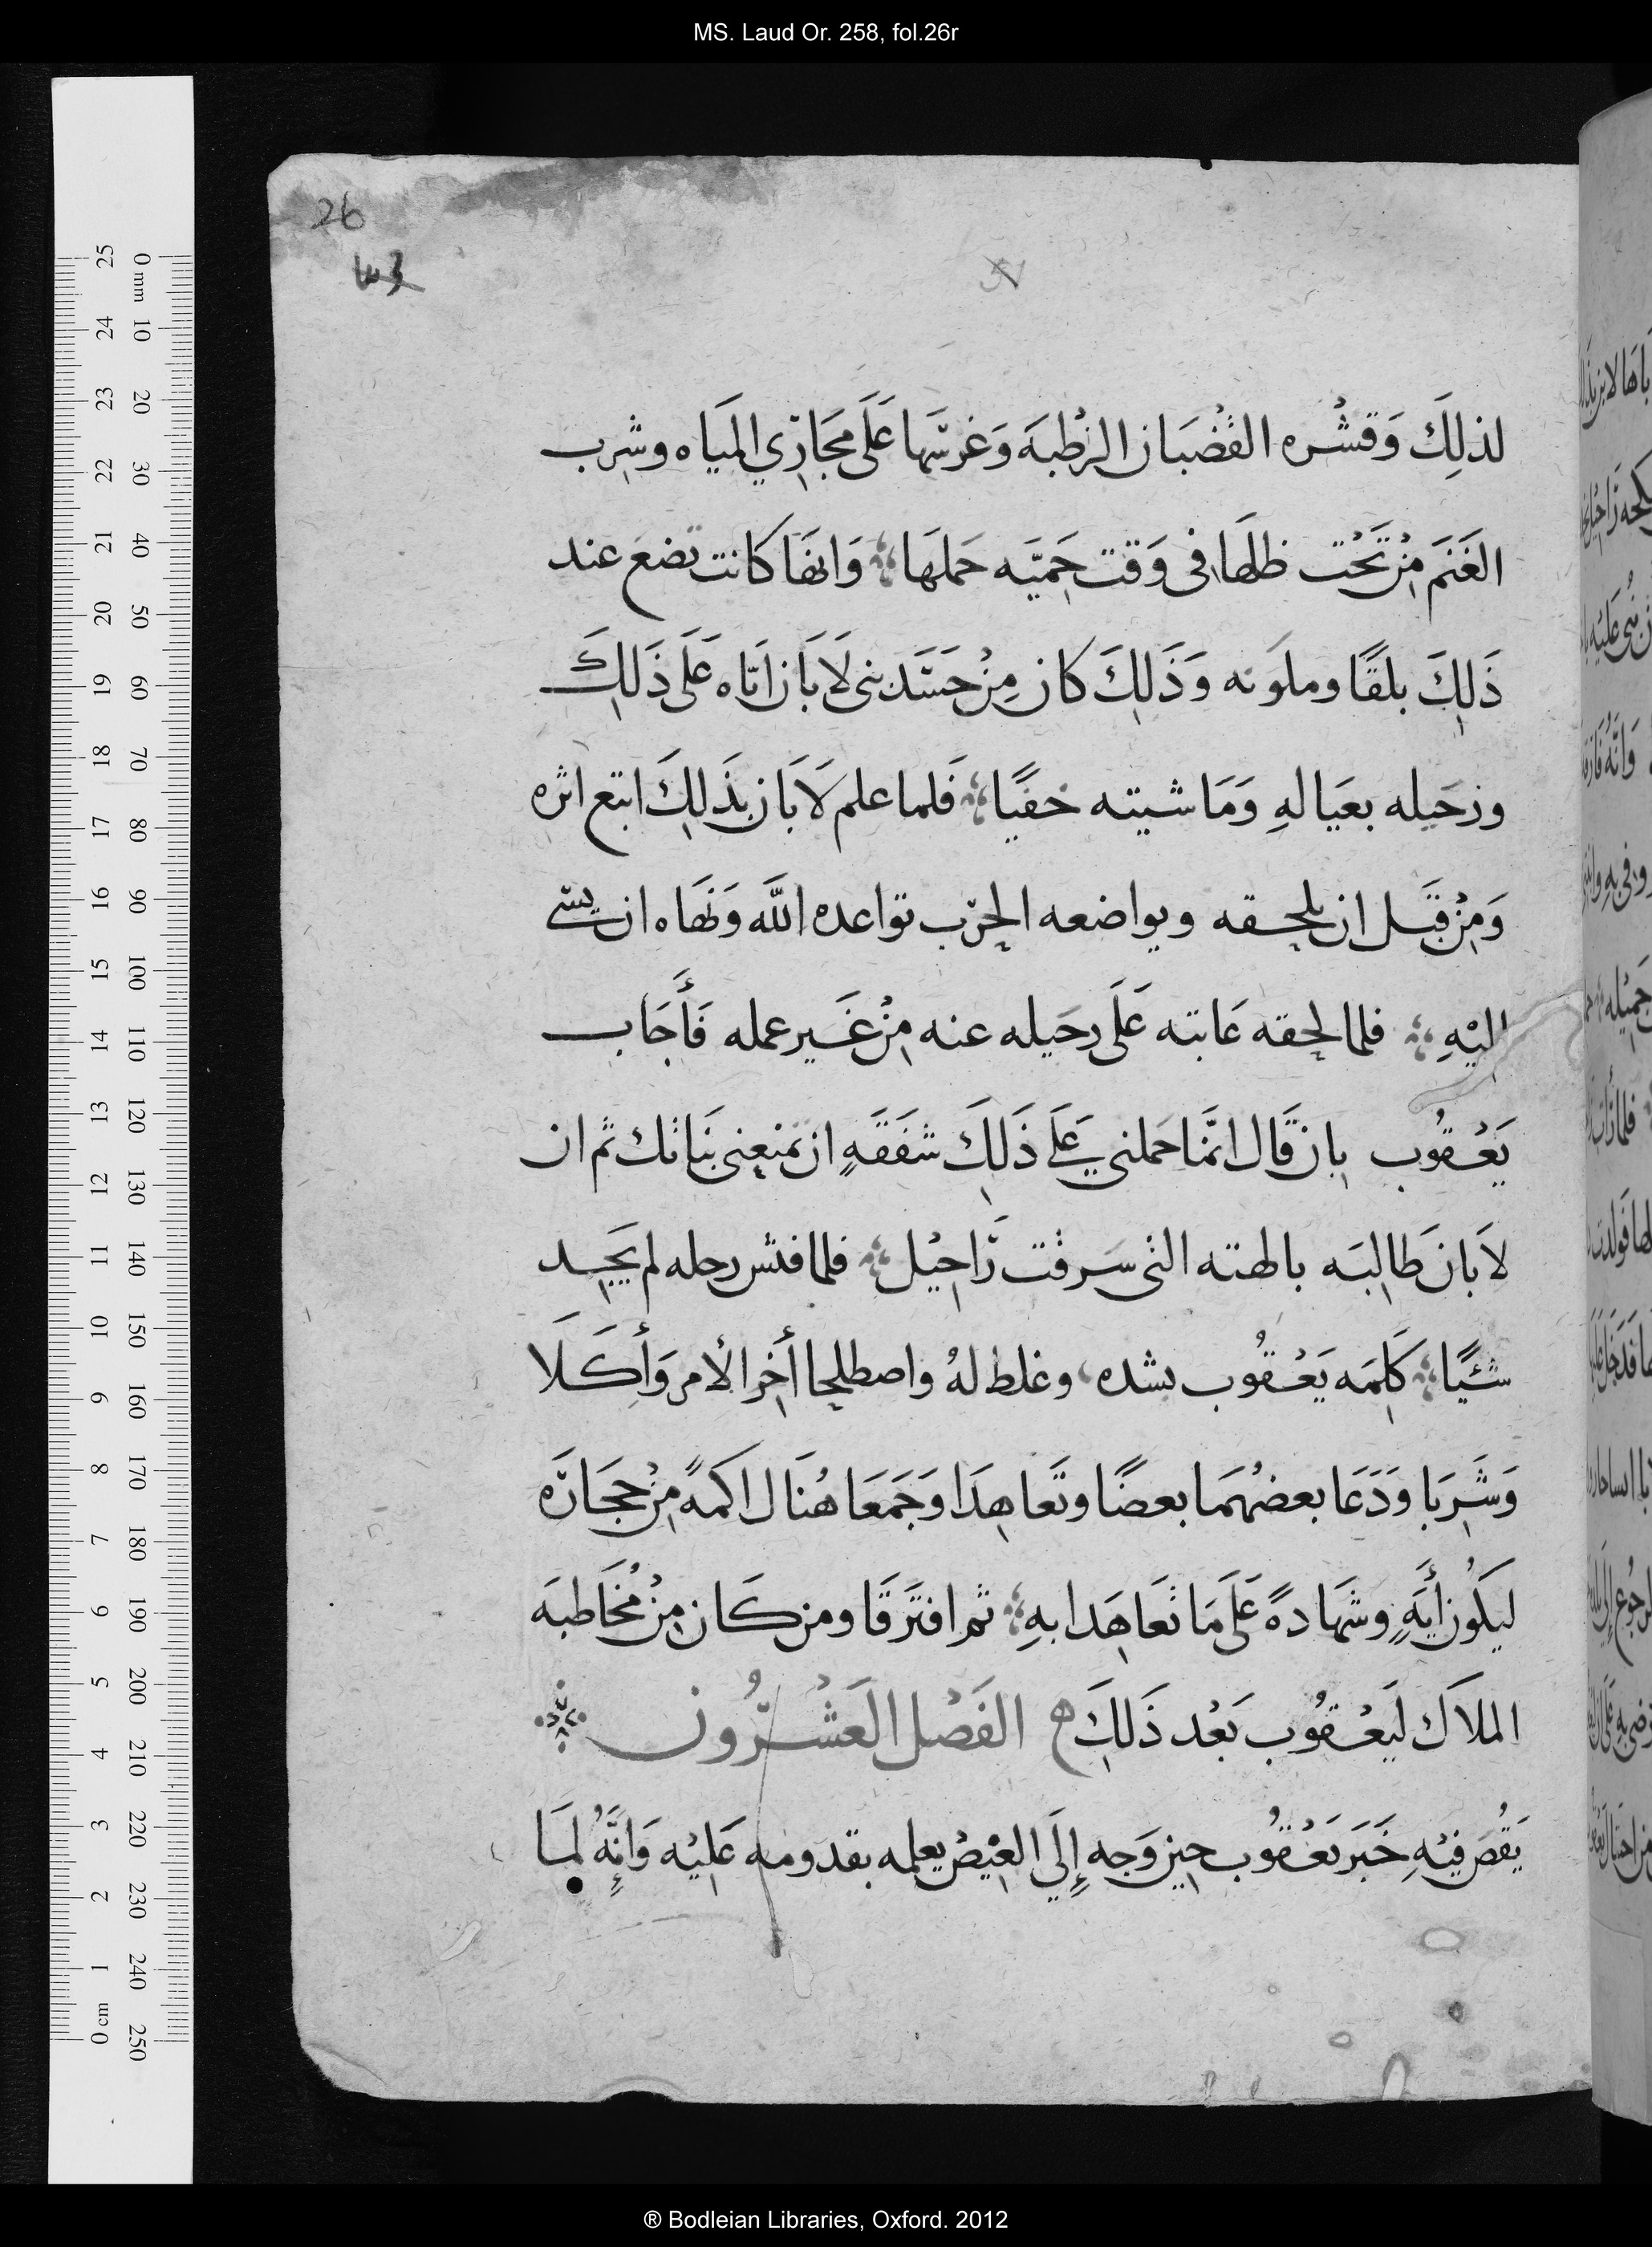 MS. Laud Or. 258, fol.26r
26
لذلِكَ وَقشْره القُضْبَان الرَطْبهَ وَغرسَها عَلَى مجَارِي المَيَاه وشرِب
الغَنَم مِنْ تَحْت ظلهَا فى وَقت حَميَّه حَملهَا ؛ وَانهَا كانت تضع عند
ذَلِكَ بلقًا وملَونه وَذَلِكَ كان مِنْ حسَد بنى لَابَان اتَاه عَلَى ذَلِكَ
ورَحَيله بعَيَالهِ وَمَاشيته خفيًا ؛ فَلما علم لَابَان بذَلِكَ اتبع اثره
وَمِنْ قبَل ان يلحقه ويواضعه الحرْب تواعده اللَّه وَنهَاه ان يسَى
اليْهِ ؛ فلما لحقه عَاتبه عَلَى رحَيله عنه مِنْ غَير عمله فَأَجَاب
يَعْقُوب بان قَال انمَّا حَملنى عَلَى ذَلِكَ شفَقَهٍ ان تمنعنى بَناتك ثم ان
لاَبان طَالبَه بالهته التى سَرقت رَاحِيْل ؛ فلما فتش رحله لم يَجِد
شئيًا ؛ كَلِمَه يَعْقُوب بشده ، وغلط لهُ واصطلحا أخِر الأمر وَأكَلَا
وَشَرِبَا وَدَعَا بعضهُمَا بعضًا وتَعاهِدَا وَجَمَعَا هُنَال اكمةً مِنْ حجَارَه
ليَكُون أيَهٍ وشَهادةً عَلَى مَا تعَاهَدا بهِ ؛ ثم افترَقَا ومن كَان مِنْ مُخَاطبَه
الملاَك ليَعْقُوب بَعْد ذَلِكَ ه الفَصْل العَشْرُون
يَقُص فيْهِ خَبَر يَعْقُوب حين وَجه إِلَي العْيصْ يعلمه بقدومه عَليْه وَانَّهُ لمَا
25 24 23 22 21 20 19 18 17 16 15 14 13 12 11 10 9 8 7 6 5 4 3 2 1 cm 0
0 mm 10 20 30 40 50 60 70 80 90 100 110 120 130 140 150 160 170 180 190 200 210 220 230 240 250
® Bodleian Libraries, Oxford. 2012